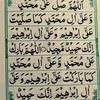 اَللّٰهُمَّ صَلِّ عَلٰى مُحَمَّدٍ
وَّعَلٰٓى اٰلِ مُحَمَّدٍ كَمَا صَلَّيْتَ
عَلٰٓى اِبْرَاهِيْمَ وَعَلٰٓى اٰلِ اِبْرَاهِيْمَ
اِنَّكَ حَمِيْدٌ مَّجِيْدٌ اَللّٰهُمَّ بَارِكْ
عَلٰى مُحَمَّدٍ وَّعَلٰٓى اٰلِ مُحَمَّدٍ
كَمَا بَارَكْتَ عَلٰٓى اِبْرَاهِيْمَ وَعَلٰٓى
اٰلِ اِبْرَاهِيْمَ اِنَّكَ حَمِيْدٌ مَّجِيْدٌ